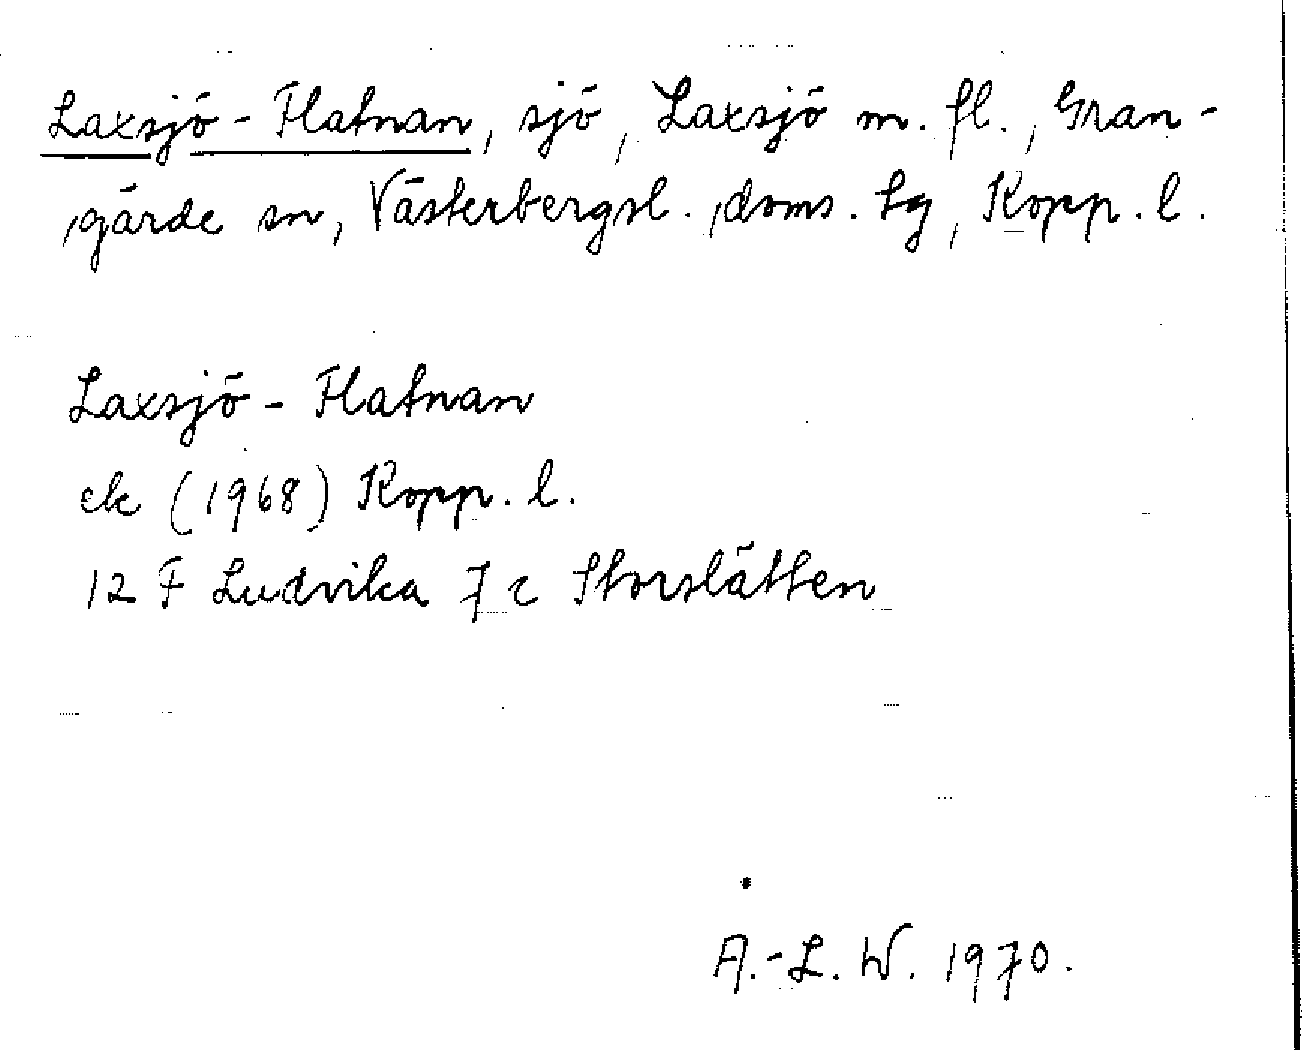 Laxsjö-Flatnan, sjö, Laxsjö m. fl., Gran-
gärde sn, Västerbergsl. doms. tg, Kopp. l.
Laxsjö-Flatnan
ek (1968) Kopp. l.
12 F Ludvika 7 c Storslätten
A.-L. W. 1970.